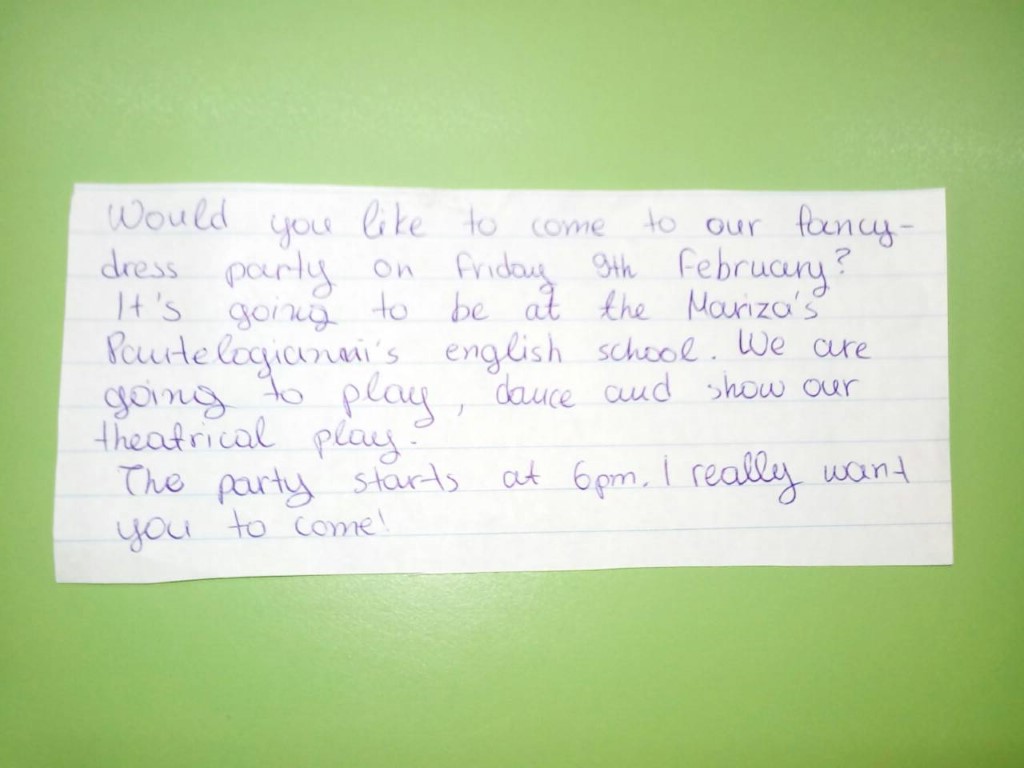 Would you like to come to our fancy-
dress party on Friday 9th February?
It's going to be at the Mariza's
Pantelogianni's english school. We are
going to play, dance and show our
theatrical play.
The party starts at 6pm. I really want
you to come!